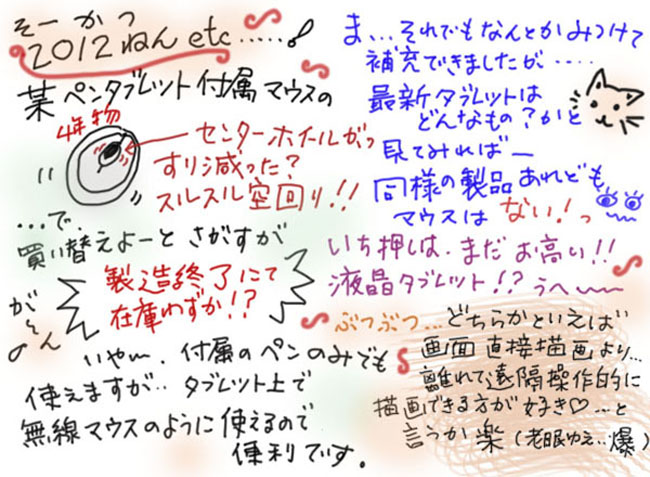 そーかつ
2012ねん etc……!
某 ペンタブレット付属マウスの
4年物
センターホイールがっ
すり減った?
スルスル空回り!!
…で、
買い替えよーと さがすが
製造終了にて
在庫わずか!?
がーん
いやー、付属のペンのみでも
使えますが… タブレット上で
無線マウスのように使えるので
便利です。
ま…それでもなんとかみつけて
補充できましたが…‥
最新タブレットは
どんなもの?かと
見てみればー
同様の製品あれども
マウスは ない!っ
いち押しは、まだお高い!!
液晶タブレット!? うへ〜〜
ぶつぶつ… どちらかといえば
画面 直接描画より…
離れて遠隔操作的に
描画できる方が好き♡…と
言うか 楽(老眼ゆえ…爆)